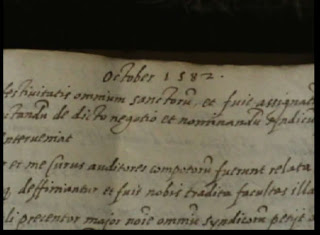 October 1582.
festivitatis omnium sanctorũ, et fuit assignat
tandũ de dicto negotio et nominandũ sindicu
interveniat
r et me surus auditores compotorũ fuerunt relata
q̨ deffiniantur et fuit nobis tradita facultas illa
di precentor maior noie omniũ syndicorũ petijt